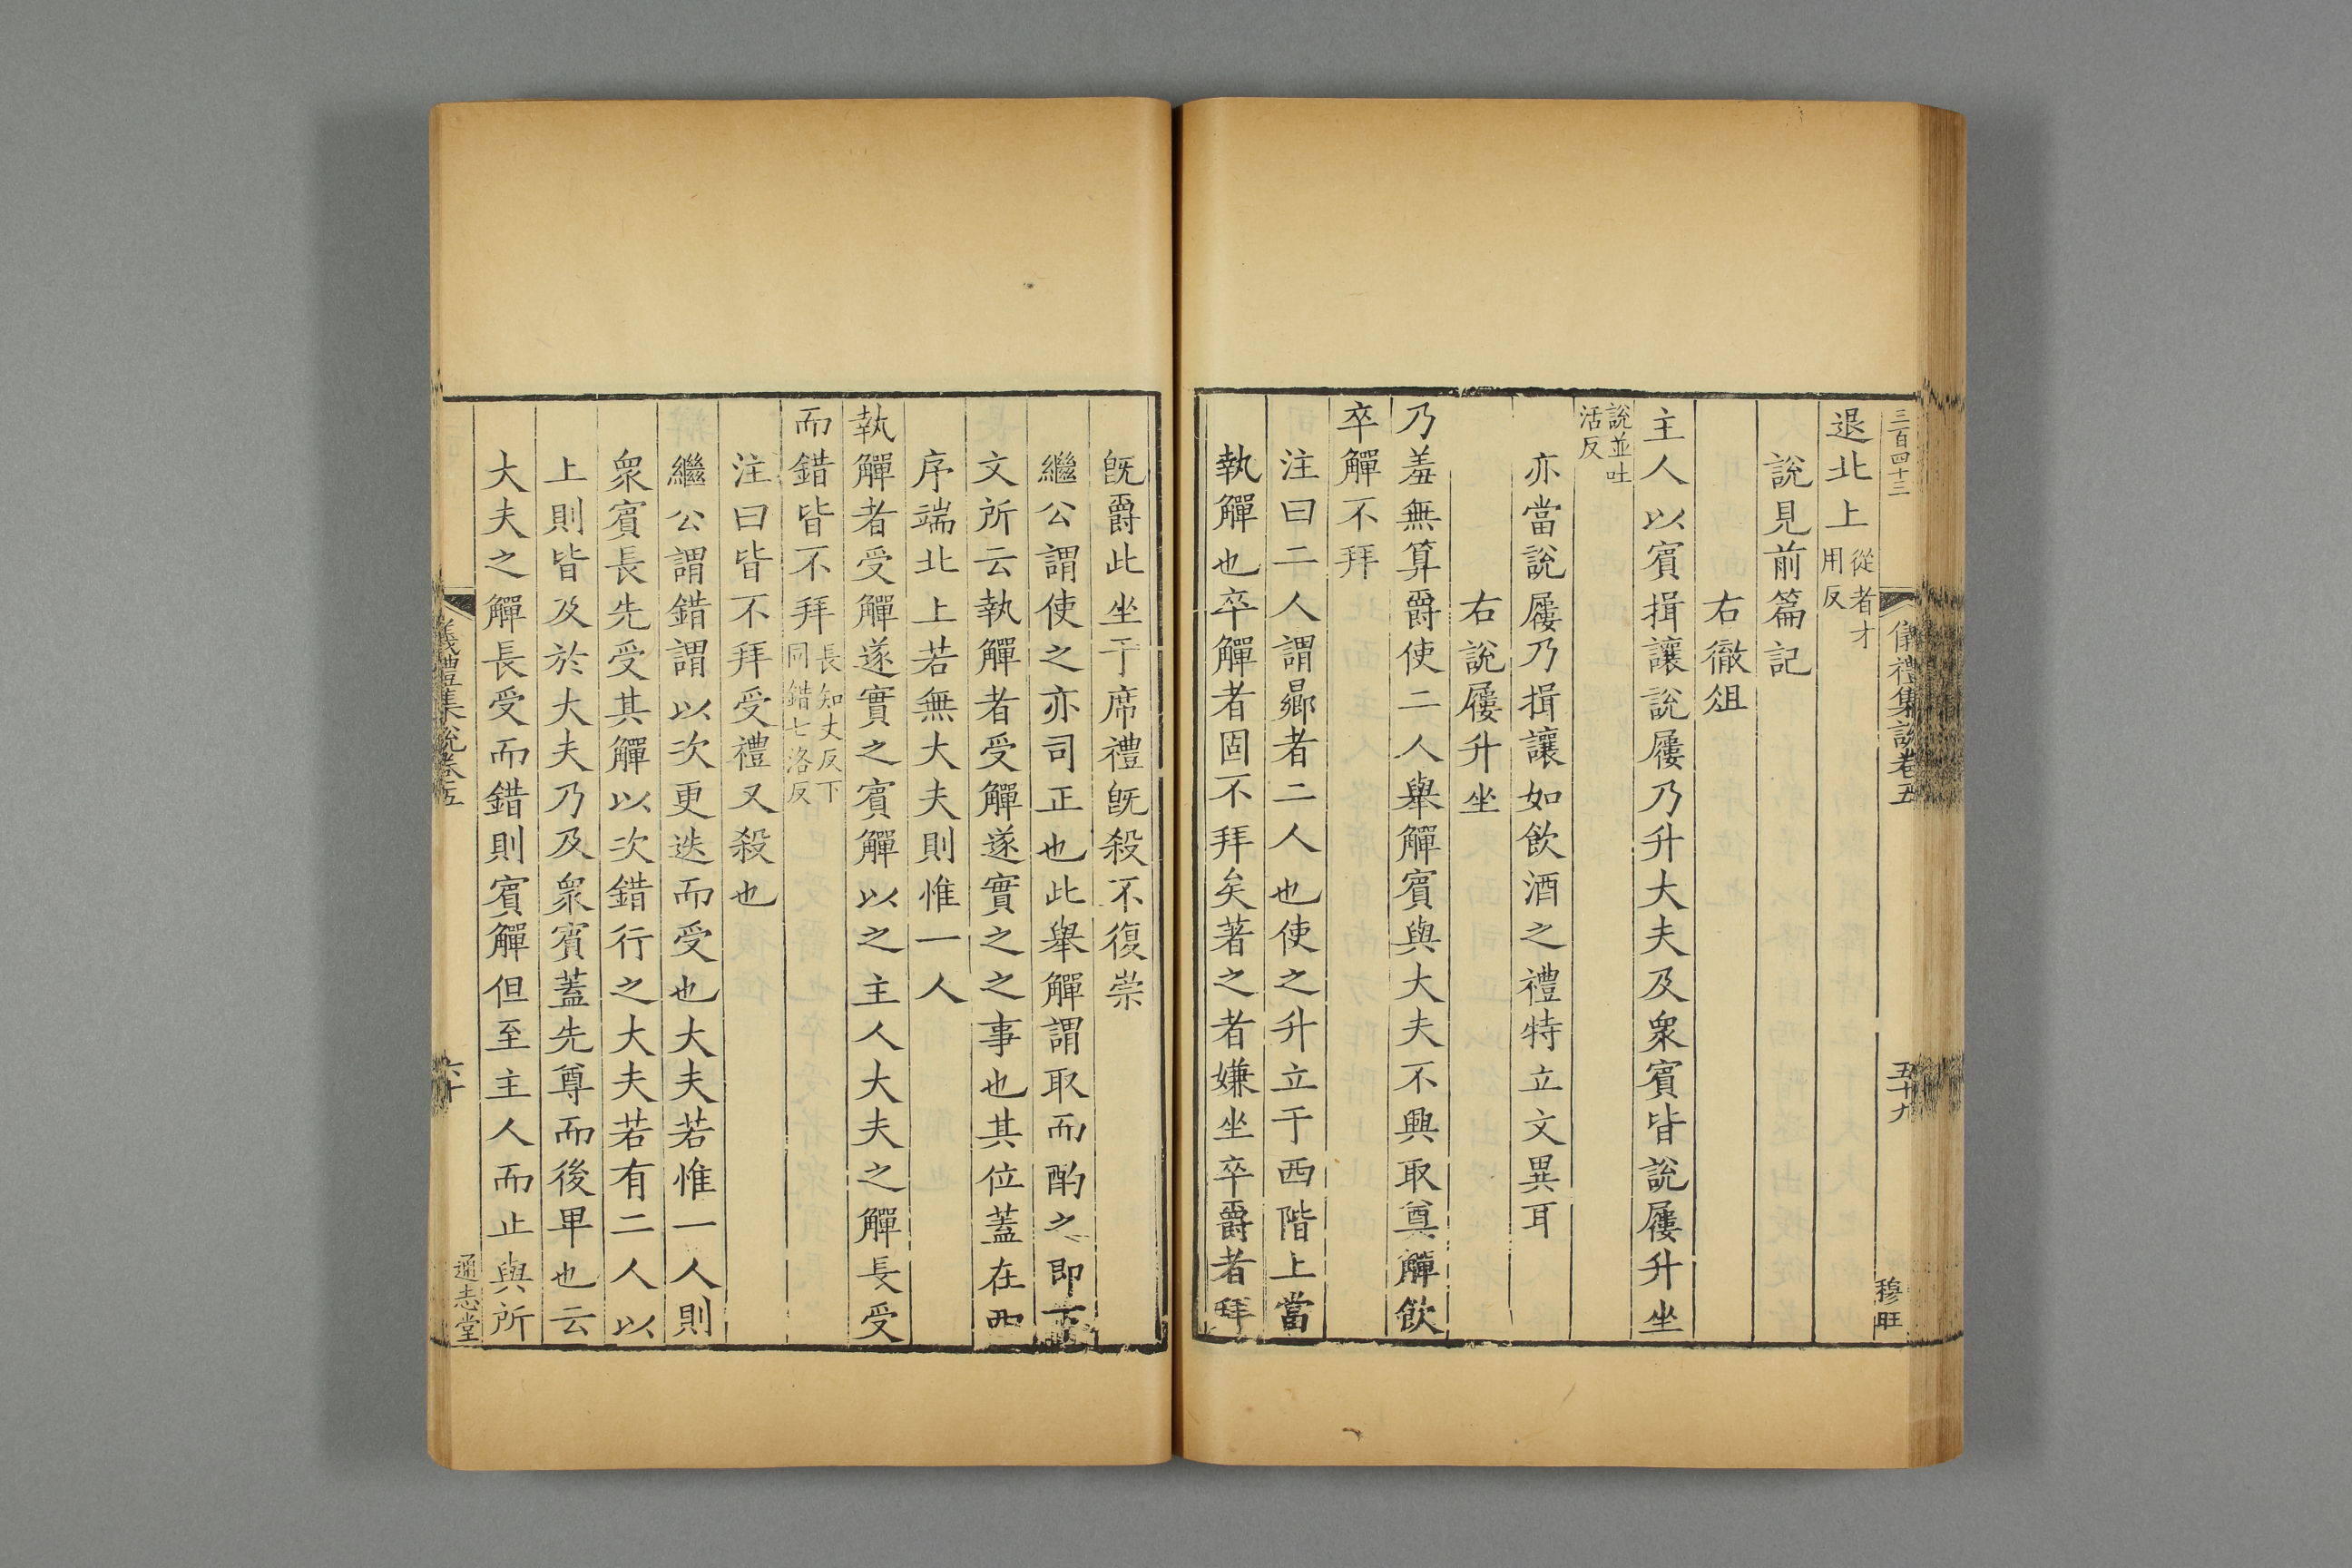 三百四十三
儀禮集說卷五
五十九
穆旺
退北上從者才用反
說見前篇記
右徹俎
主人以賓揖讓說屨乃升大夫及衆賓皆說屨升坐
說並吐活反
亦當說屨乃揖讓如飲酒之禮特立文異耳
右說屨升坐
乃羞無算爵使二人舉觶賓與大夫不興取奠觶飲
卒觶不拜
注曰二人謂曏者二人也使之升立于西階上當
執觶也卒觶者固不拜矣著之者嫌坐卒爵者拜
旣爵此坐于席禮旣殺不復崇
繼公謂使之亦司正也此舉觶謂取而酌之即下
文所云執觶者受觶遂實之之事也其位蓋在西
序端北上若無大夫則惟一人
執觶者受觶遂實之賓觶以之主人大夫之觶長受
而錯皆不拜長知丈反下同錯七洛反
注曰皆不拜受禮又殺也
繼公謂錯謂以次更迭而受也大夫若惟一人則
衆賓長先受其觶以次錯行之大夫若有二人以
上則皆及於大夫乃及衆賓蓋先尊而後卑也云
大夫之觶長受而錯則賓觶但至主人而止與所
儀禮集說卷五
六十
通志堂